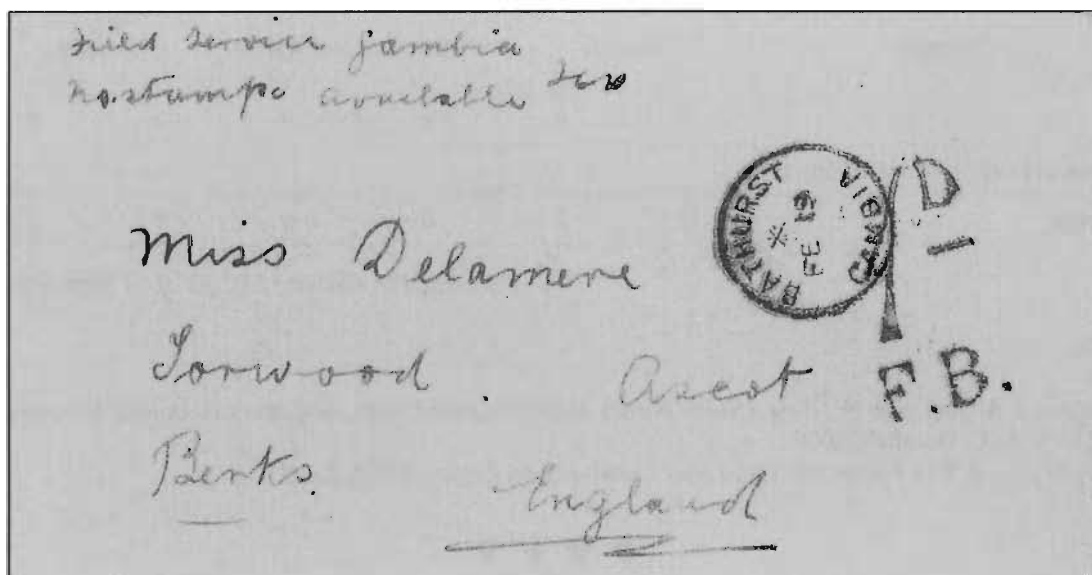 Field Service Gambia
No stamps available
BATHURST GAMBIA
D
1
Miss Delamere
Torwood Ascot
F.B.
Berks. England